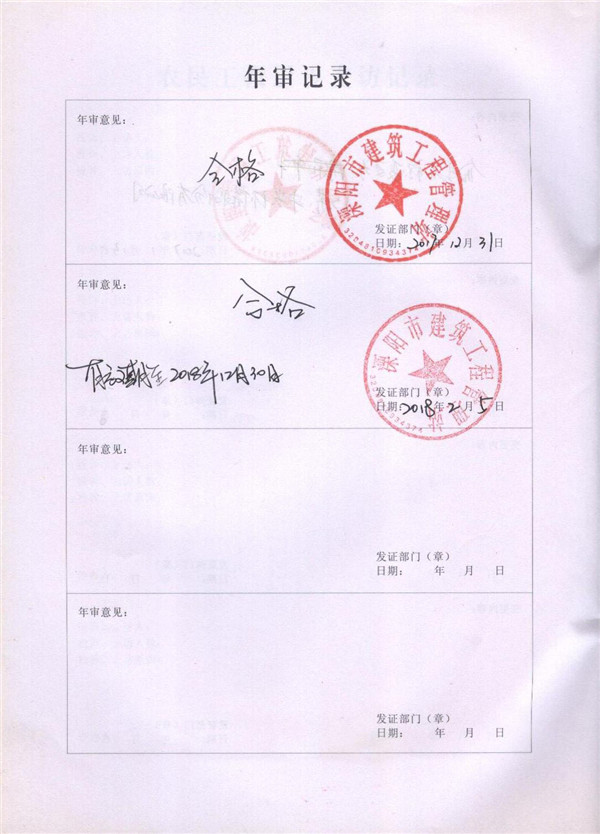 年审记录
年审意见:
合格
溧阳市建筑工程管理处
3204810934374
发证部门（章）
日期: 2017年12月31日
年审意见:
合格
有效期至2018年12月30日
溧阳市建筑工程管理站
发证部门（章）
日期: 2018年2月5日
年审意见:
发证部门（章）
日期: 年 月 日
年审意见:
发证部门（章）
日期: 年 月 日